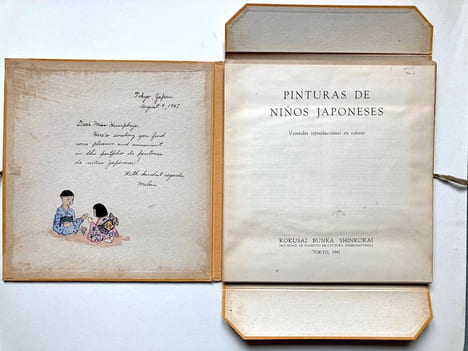 Tokyo, Japan
August 9, 1947
Dear Miss Humphrey,
Here's wishing you find
some pleasure and amusement
in this portfolio de pinturas
de niños Japonese.
With kindest regards,
PINTURAS DE
NIÑOS JAPONESES
Veintidós reproducciones en colores
KOKUSAI BUNKA SHINKOKAI
(SOCIEDAD DE FOMENTO DE CULTURA INTERNACIONAL)
TOKYO, 1941